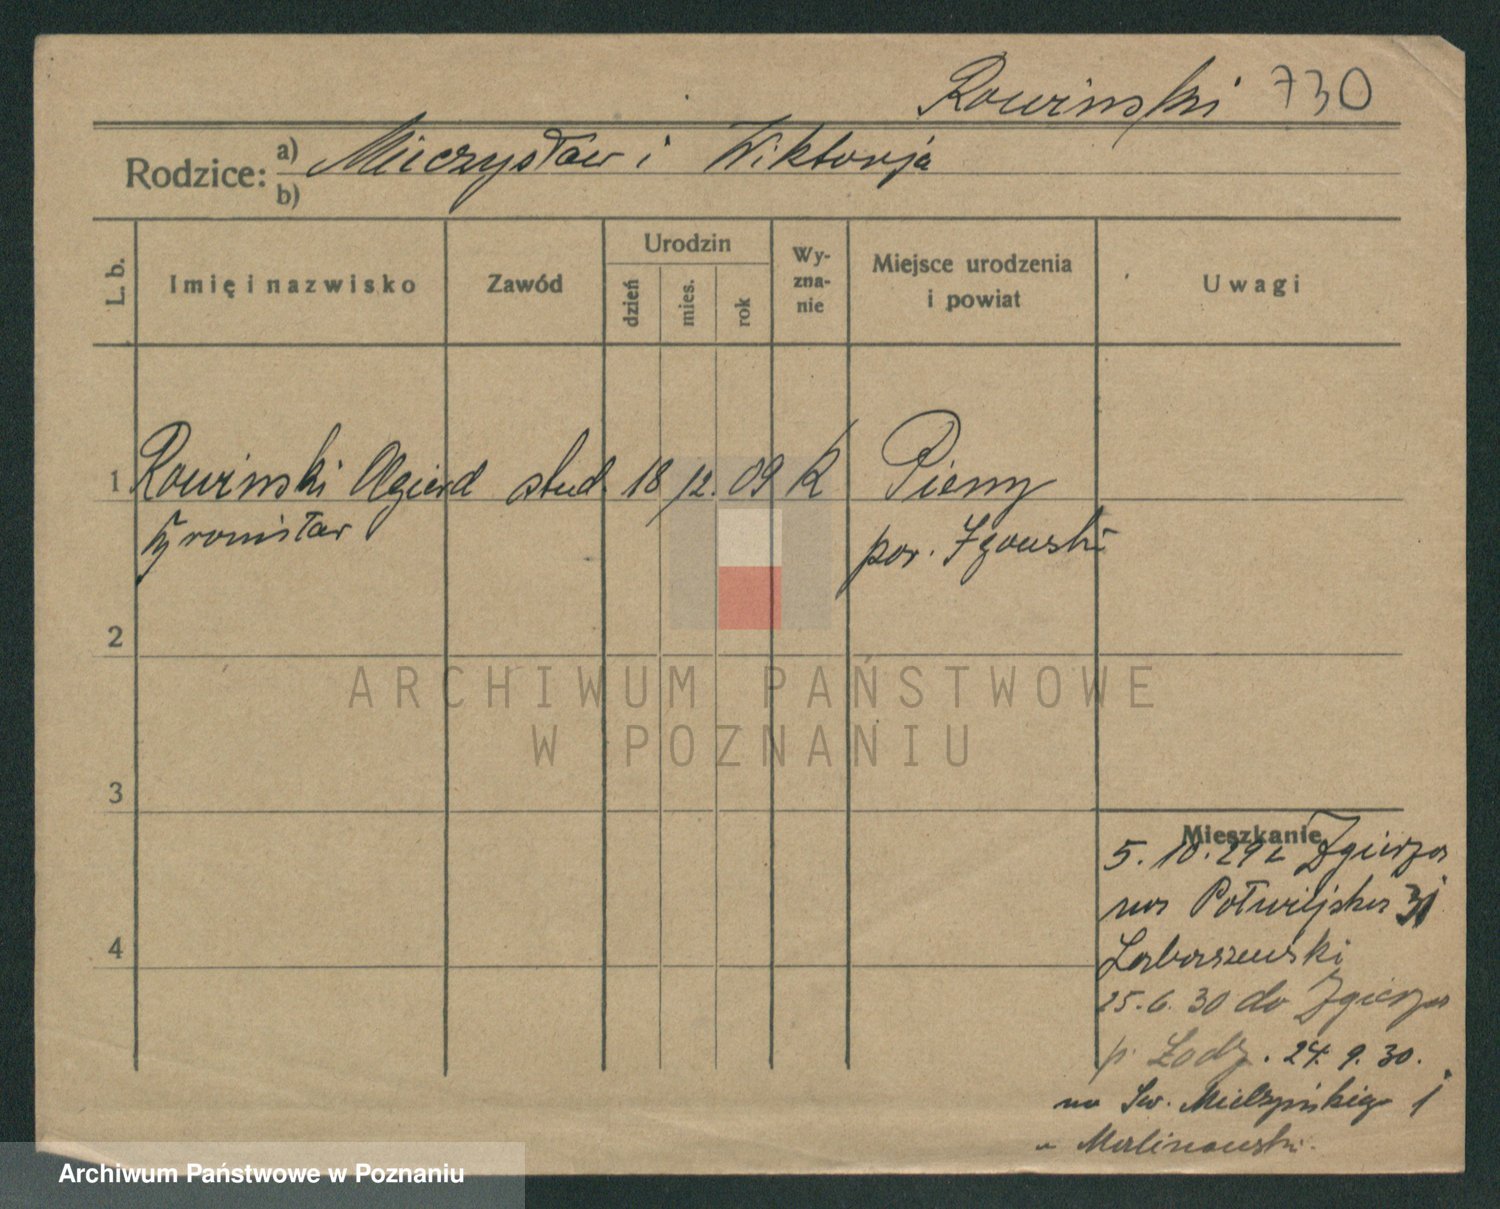 Rowiński 730
Rodzice: a) Mieczysław i Wiktorja
b)
L. b.
Imię i nazwisko
Zawód
Urodzin
dzień
mies.
rok
Wy-
zna-
nie
Miejsce urodzenia
i powiat
Uwagi
1 Rowiński Olgierd stud. 18 12. 09 K Pieny
pow.
2
3
4
Mieszkanie
5. 10. 29 z Zgierza
na Półwiejska 31
Labaszewski
25. 6. 30 do Zgierza
p. Łodz. 24. 9. 30.
na Sew. Mielżyńskiego 1
u Malinowski.
ARCHIWUM PAŃSTWOWE
W POZNANIU
Archiwum Państwowe w Poznaniu